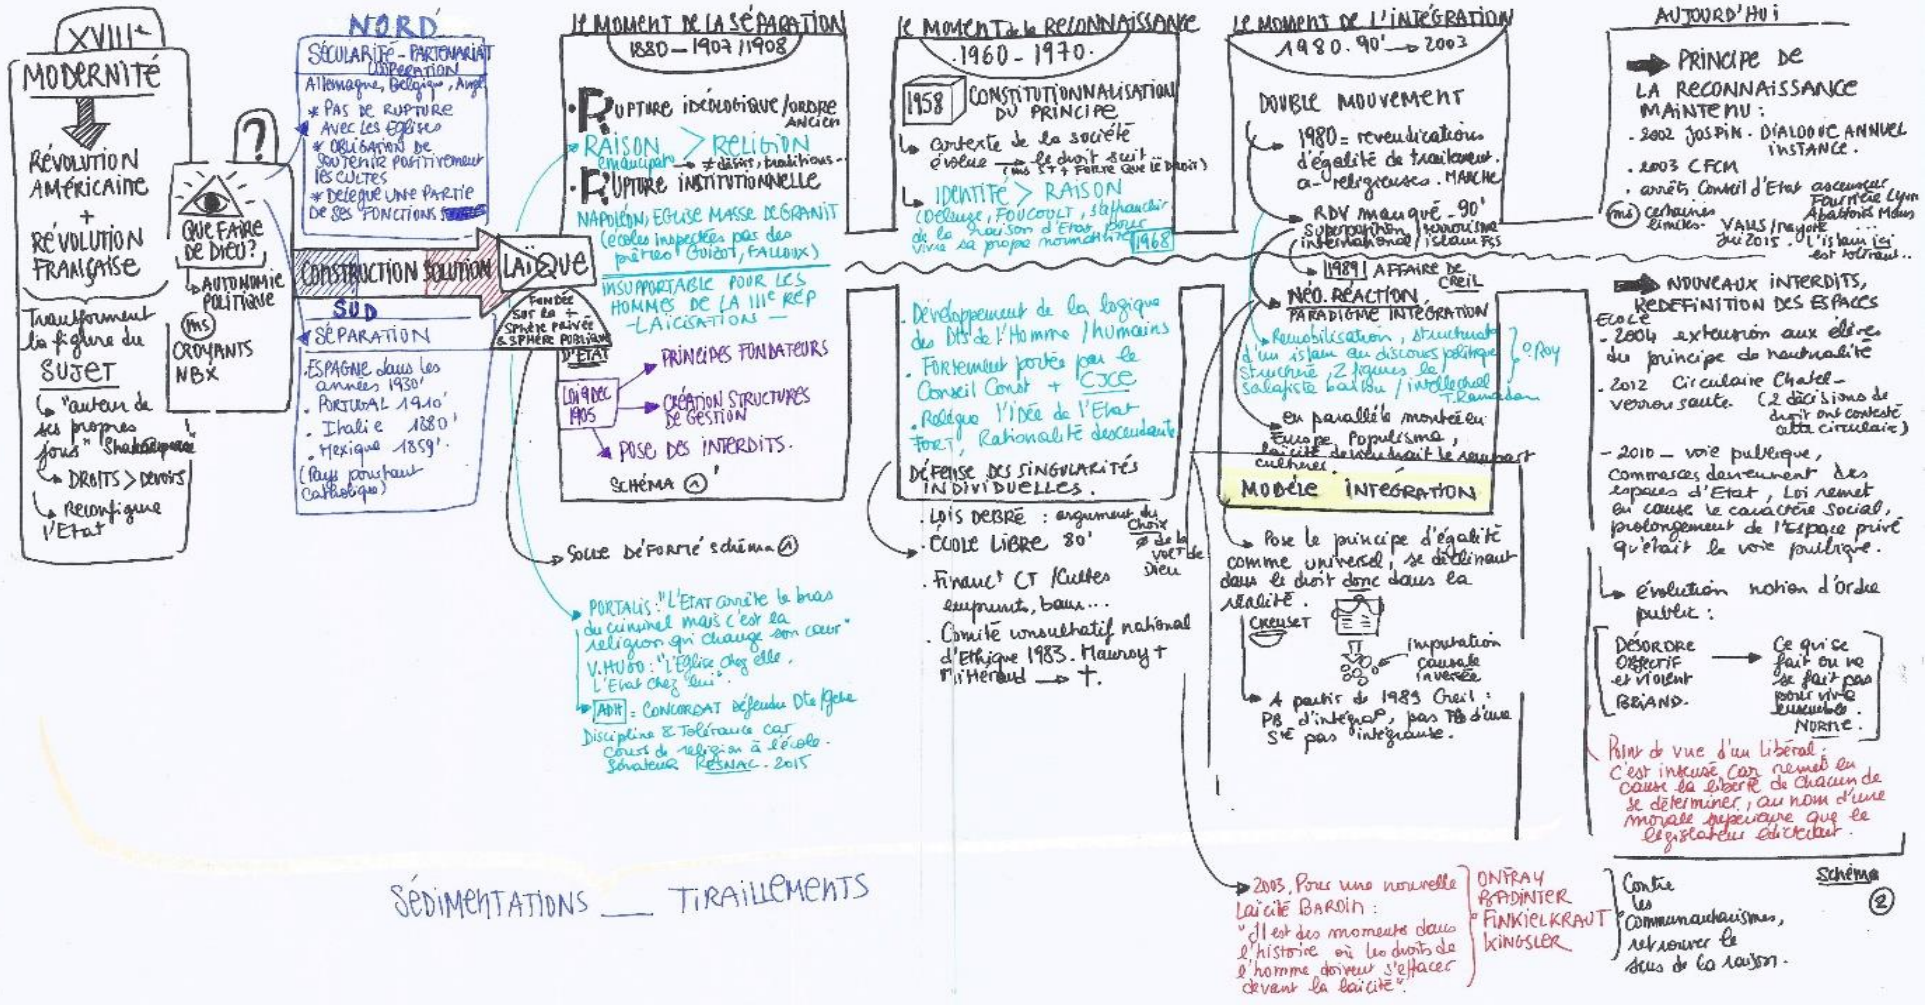 XVIIIe
MODERNITÉ
RÉVOLUTION
AMÉRICAINE
+
RÉVOLUTION
FRANÇAISE
Transforment
la figure du
SUJET
"auteur de
ses propres
jours" Shakespeare
DROITS > DEVOIRS
Reconfigure
l'Etat
?
QUE FAIRE
DE DIEU?
AUTONOMIE
POLITIQUE
(ms)
CROYANTS
NBX
NORD
SÉCULARITÉ - PARTENARIAT
COOPERATION
Allemagne, Belgique,
* PAS DE RUPTURE
Avec les Eglises
* OBLIGATION DE
SOUTENIR POSITIVEMENT
les CULTES
* DELEGUE UNE PARTIE
DE SES FONCTIONS
CONSTRUCTION SOLUTION
LAÏQUE
FONDÉE
sur la +
SPHÈRE PRIVÉE
& SPHÈRE PUBLIQUE
D'ETAT
SUD
SÉPARATION
. ESPAGNE dans les
années 1930'
. PORTUGAL 1910'
. Italie 1880'
. Mexique 1859'.
(Pays pourtant
catholique)
LE MOMENT DE LA SÉPARATION
1880 - 1907/1908
. RUPTURE IDÉOLOGIQUE/ORDRE
ANCIEN
RAISON > RELIGION
≠ désirs, traditions -
. RUPTURE INSTITUTIONNELLE
NAPOLÉON, EGLISE MASSE DE GRANIT
(écoles inspectées pas des
prêtres Guizot, FALLOUX)
INSUPPORTABLE POUR LES
HOMMES DE LA IIIe RÉP
- LAÏCISATION -
PRINCIPES FONDATEURS
LOI 9 DEC
1905
CRÉATION STRUCTURES
DE GESTION
POSE DES INTERDITS.
SCHÉMA 1
SOCLE DÉFORMÉ schéma 1
PORTALIS: "L'ETAT arrête le bras
du criminel mais c'est la
religion qui change son cœur"
V.HUGO: "L'Eglise chez elle,
L'Etat chez lui".
= CONCORDAT défendu Dte/gche
Discipline & Tolérance car
Cours de religion à l'école.
Sénateur RESNAC. 2015
LE MOMENT de la RECONNAISSANCE
1960 - 1970.
1958
CONSTITUTIONNALISATION
DU PRINCIPE
contexte de la société
évolue → le droit suit
IDENTITÉ > RAISON
(Deleuze, FOUCOULT, s'affranchir
de la raison d'Etat pour
vivre sa propre normativité
1968
. Développement de la logique
des Dts de l'Homme / humains
. Fortement portée par le
Conseil Const + CJCE
. Relègue l'idée de l'Etat
FORT, Rationalité descendante
DÉFENSE DES SINGULARITÉS
INDIVIDUELLES.
. LOIS DEBRÉ : argument du
choix
≠ de la
voix de
Dieu
. ÉCOLE LIBRE 80'
. Financt CT /Cultes
emprunts, baux...
. Comité consultatif national
d'Ethique 1983. Mauroy +
Mitterand → †.
LE MOMENT DE L'INTÉGRATION
1980. 90' → 2003
DOUBLE MOUVEMENT
1980 = revendications
d'égalité de traitement.
a-religieuses. MARCHE
RDV manqué - 90'
Superposition / terrorisme
international / islam
1989 AFFAIRE DE
CREIL
NÉO. RÉACTION
PARADIGME INTÉGRATION
Remobilisation, structurat°
d'un islam au discours politique
structuré, 2 figures le
salafiste barbu / intellectuel
T.Ramadan
O. Roy
en parallèle montée en
Europe Populisme,
laïcité deviendrait le rempart
culturel.
MODÈLE INTÉGRATION
Pose le principe d'égalité
comme universel, se déclinant
dans le droit donc dans la
réalité.
CREUSET
imputation
causale
inversée
A partir de 1989 Creil :
PB d'intégrat°, pas PB d'une
Sté pas intégrante.
2003. Pour une nouvelle
Laïcité BAROIN :
"Il est des moments dans
l'histoire où les droits de
l'homme doivent s'effacer
devant la laïcité".
ONFRAY
BADINTER
FINKIELKRAUT
KINGSLER
Contre
les
communautarismes,
retrouver le
sens de la raison.
AUJOURD'HUI
PRINCIPE DE
LA RECONNAISSANCE
MAINTENU :
. 2002 JOSPIN. DIALOGUE ANNUEL
INSTANCE.
. 2003 CFCM
. arrêts Conseil d'Etat ascenseur
Fourvière Lyon
Abattoirs Mans
...
(ms) certaines
limites.
l'islam ici
est tolérant..
NOUVEAUX INTERDITS,
REDÉFINITION DES ESPACES
ECOLE
. 2004 extension aux élèves
du principe de neutralité
. 2012 Circulaire Chatel -
verrou saute. (2 décisions de
droit ont contesté
cette circulaire)
- 2010 - voie publique,
commerces deviennent des
espaces d'Etat, Loi remet
en cause le caractère social,
prolongement de l'Espace privé
qu'était la voie publique.
évolution notion d'ordre
public :
DÉSORDRE
OBJECTIF
et violent
BRIAND.
Ce qui se
fait ou ne
se fait pas
pour vivre
ensemble.
NORME.
Point de vue d'un Libéral :
C'est insensé car remet en
cause la liberté de chacun de
se déterminer, au nom d'une
morale supérieure que le
législateur édicterait.
Schéma
2
SÉDIMENTATIONS __ TIRAILLEMENTS